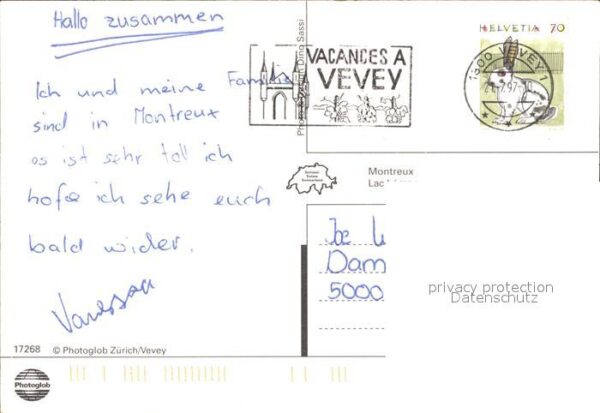 Hallo zusammen
Ich und meine Familie
sind in Montreux
es ist sehr toll ich
hofe ich sehe euch
bald wider.
Vanessa
17268 © Photoglob Zürich/Vevey
Photoglob
Dino Sassi
VACANCES A
VEVEY
HELVETIA 70
1800 VEVEY 1
Montreux
Lac
Joe
Dam
5000
privacy protection
Datenschutz